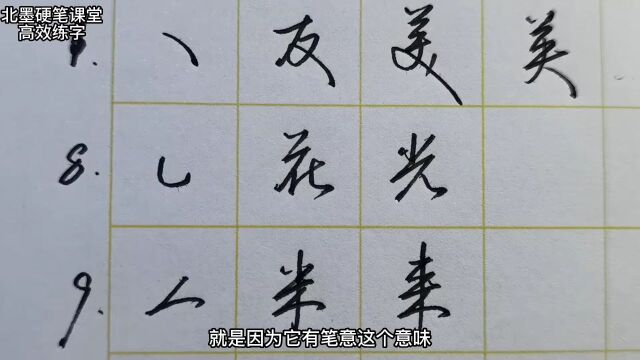 北墨硬笔课堂
高效练字
丶 友 美 英
8. 乚 花 光
9. 𠂉 米 来
就是因为它有笔意这个意味